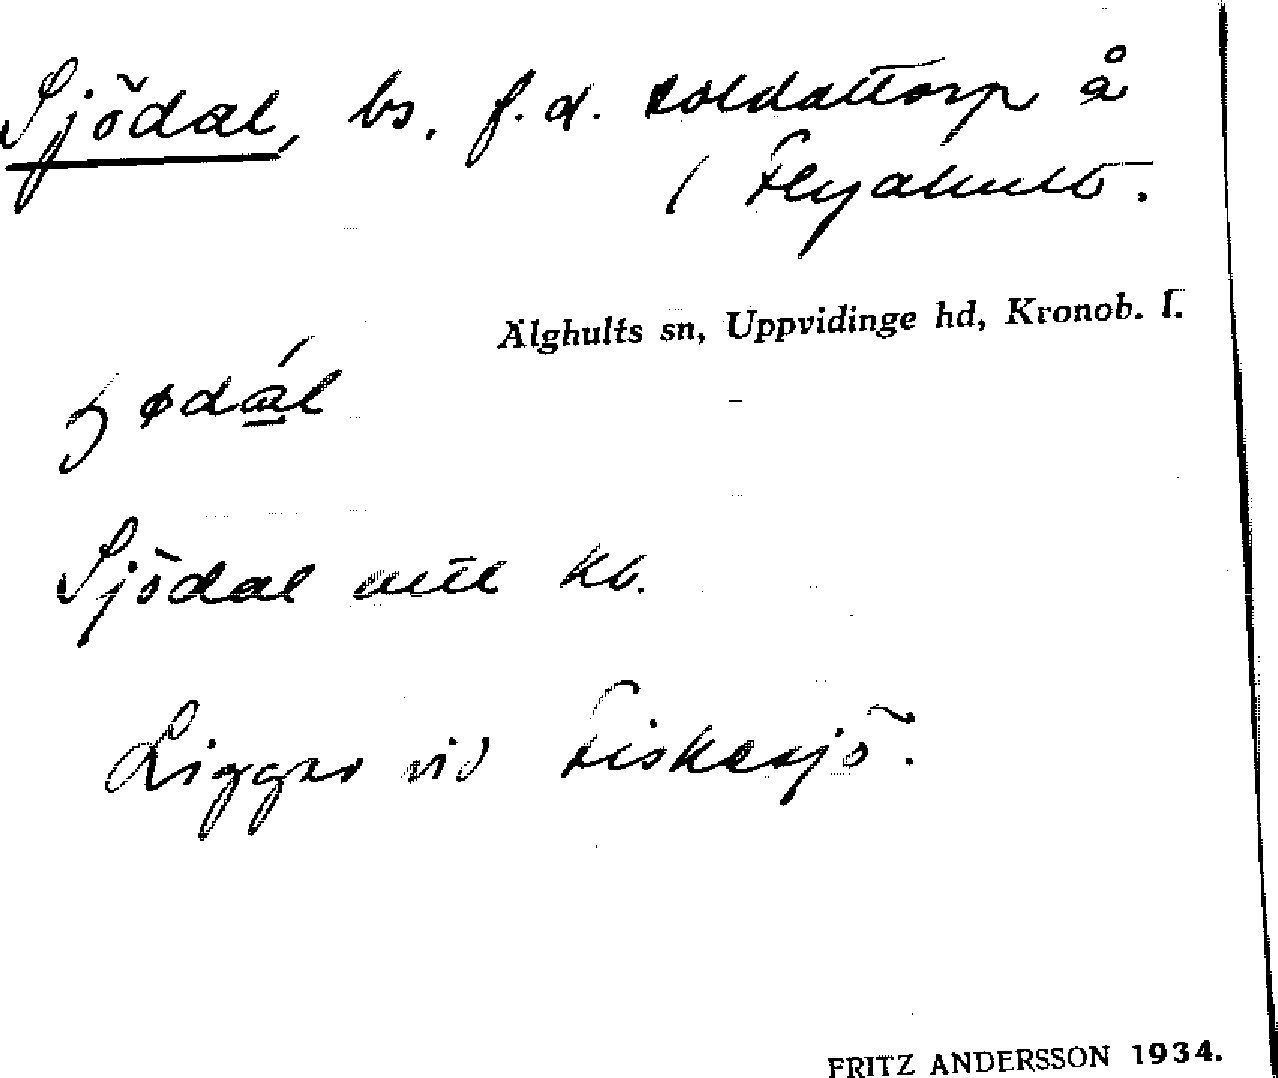 Sjödal, bs. f.d. soldattorp å
( Flyahult.
Älghults sn, Uppvidinge hd, Kronob. l.
Sjödal enl kb.
Ligger vid Fiskesjö.
FRITZ ANDERSSON 1934.